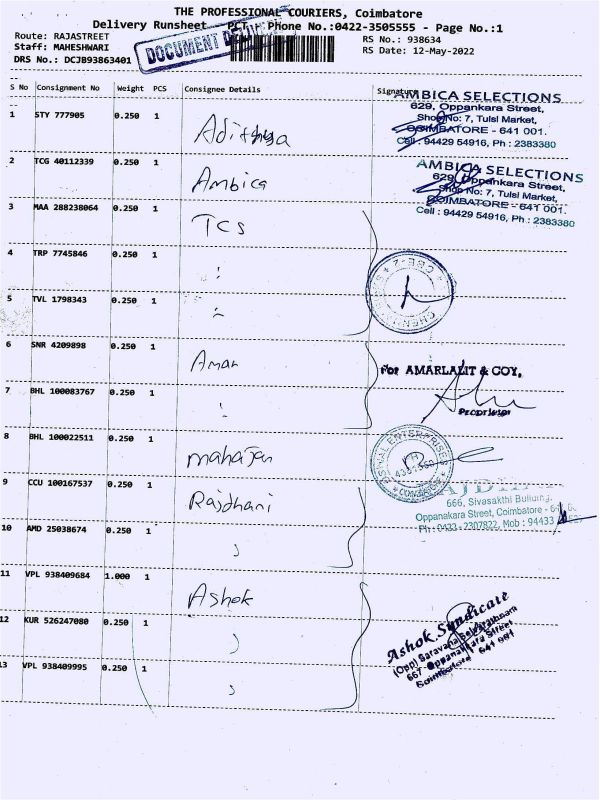 THE PROFESSIONAL COURIERS, Coimbatore
Delivery Runsheet PCT - Phone No.:0422-3505555 - Page No.:1
Route: RAJASTREET
RS No.: 938634
Staff: MAHESHWARI
RS Date: 12-May-2022
DRS No.: DCJB93863401
DOCUMENT
S No Consignment No Weight PCS Consignee Details Signature
1 STY 777905 0.250 1 Adithya
AMBICA SELECTIONS
629, Oppankara Street,
Shop No: 7, Tulsi Market,
COIMBATORE - 641 001.
Cell : 94429 54916, Ph : 2383380
2 TCG 40112339 0.250 1 Ambica
AMBICA SELECTIONS
629, Oppankara Street,
Shop No: 7, Tulsi Market,
COIMBATORE - 641 001.
Cell : 94429 54916, Ph : 2383380
3 MAA 288238064 0.250 1 TCS
4 TRP 7745846 0.250 1
5 TVL 1798343 0.250 1
6 SNR 4209898 0.250 1 Aman
For AMARLALIT & COY.
7 BHL 100083767 0.250 1
8 BHL 100022511 0.250 1 mahajan
ENTERPRISES
9 CCU 100167537 0.250 1 Rajdhani
666, Sivasakthi Building,
Oppanakara Street, Coimbatore -
Ph : 0433 - 2307822, Mob : 94433
10 AMD 25038674 0.250 1
11 VPL 938409684 1.000 1 Ashok
Ashok Syndicate
(Opp) Saravana
667-Oppanakara Street
Coimbatore 641 001
12 KUR 526247080 0.250 1
13 VPL 938409995 0.250 1